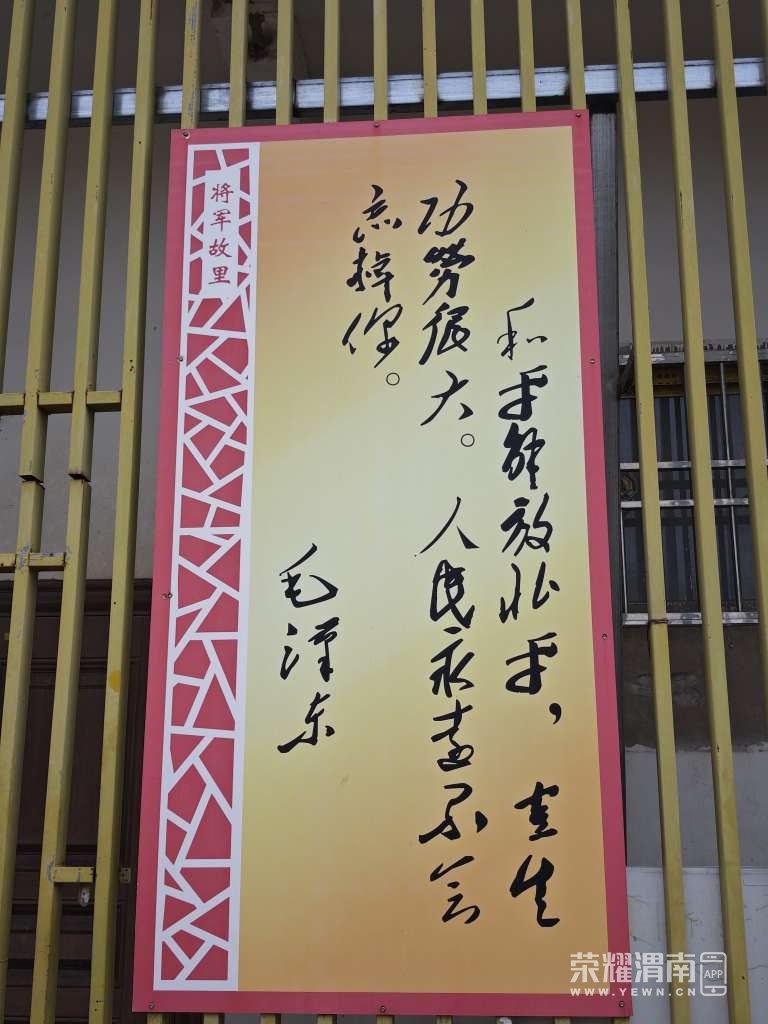 和平解放北平，宜生
功劳很大。人民永远不会
忘掉你。
毛泽东
将军故里
荣耀渭南
APP
WWW.YEWN.CN